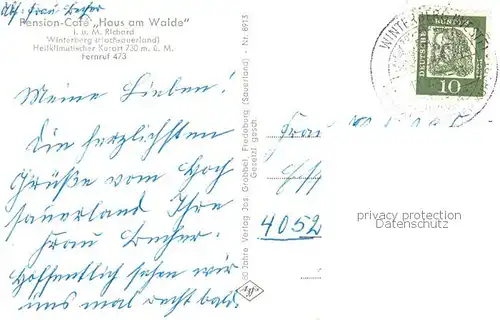 Abs. Frau Becher
Pension-Café „Haus am Walde"
I. u. M. Richard
Winterberg (Hochsauerland)
Heilklimatischer Kurort 730 m. ü. M.
Fernruf 473
Meine Lieben!
Die herzlichsten
Grüße vom Hoch
sauerland Ihre
Frau Becher.
Hoffentlich sehen wir
uns mal recht bald.
80 Jahre Verlag Jos. Grobbel, Fredeburg (Sauerland) - Nr. 8913
Gesetzl. gesch.
DEUTSCHE BUNDESPOST
10
WINTERBERG
Frau
4052
privacy protection
Datenschutz